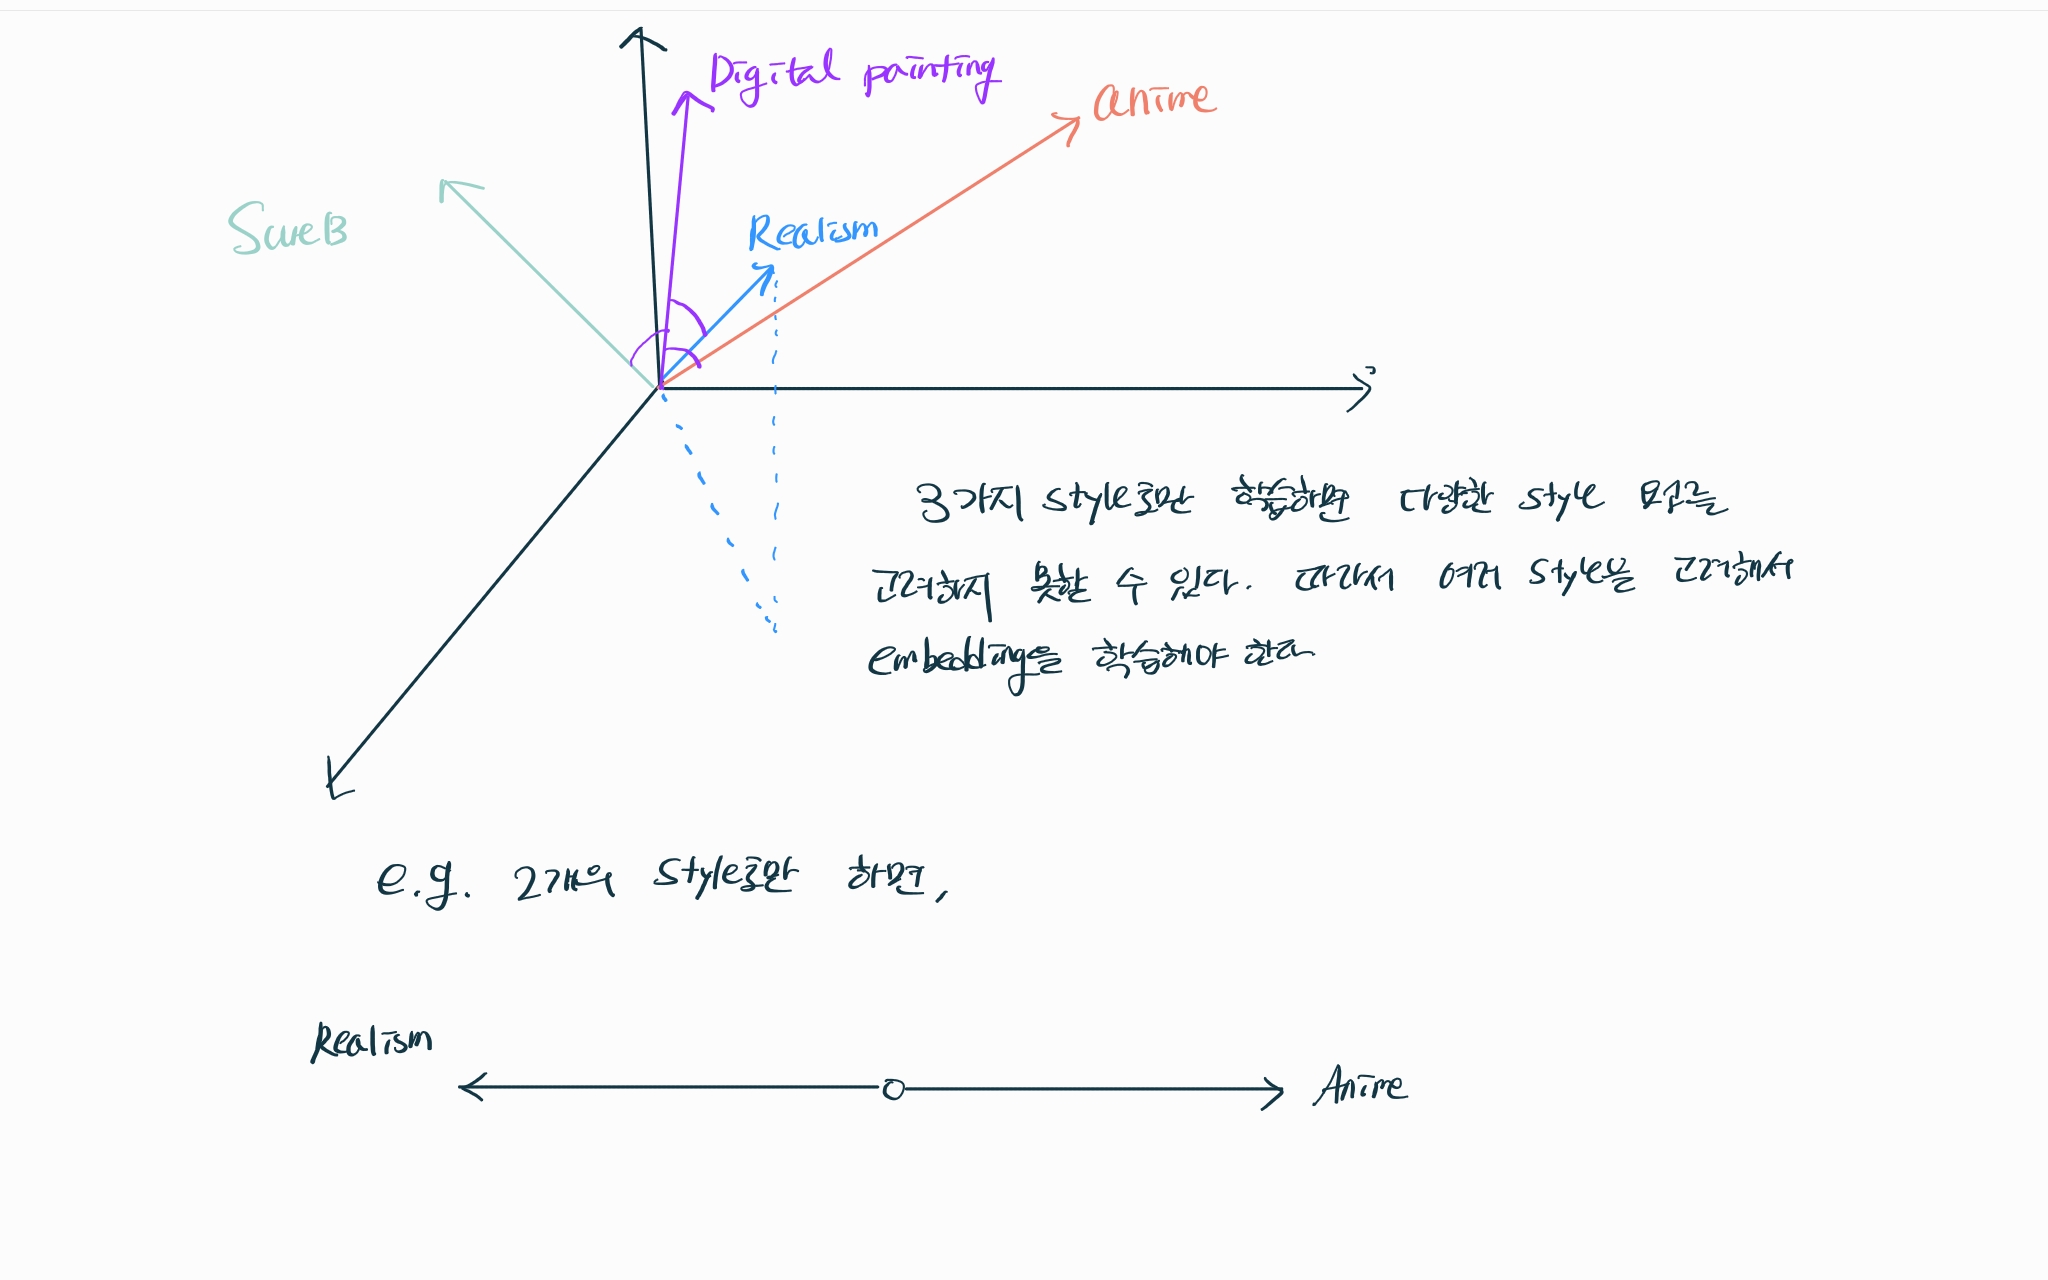 Digital painting
anime
Realism
3가지 style로만 학습하면 다양한 style 모두를
고려하지 못할 수 있다. 따라서 여러 style을 고려해서
embedding을 학습해야 한다
e.g. 2개의 style로만 하면,
Realism
Anime